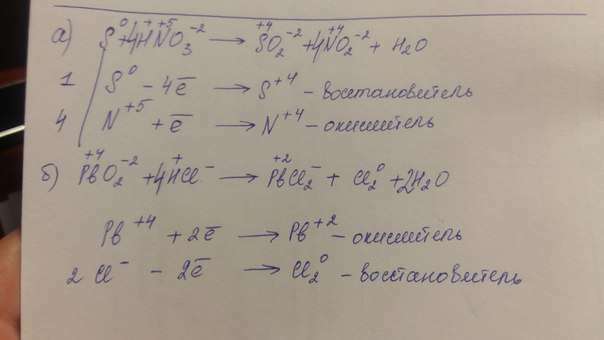 а) S⁰ + 4H⁺N⁺⁵O₃⁻² → S⁺⁴O₂⁻² + 4N⁺⁴O₂⁻² + H₂O
1 S⁰ - 4ē → S⁺⁴ - восстановитель
4 N⁺⁵ + ē → N⁺⁴ - окислитель
б) Pb⁺⁴O₂⁻² + 4H⁺Cl⁻ → Pb⁺²Cl₂⁻ + Cl₂⁰ + 2H₂O
Pb⁺⁴ + 2ē → Pb⁺² - окислитель
2Cl⁻ - 2ē → Cl₂⁰ - восстановитель